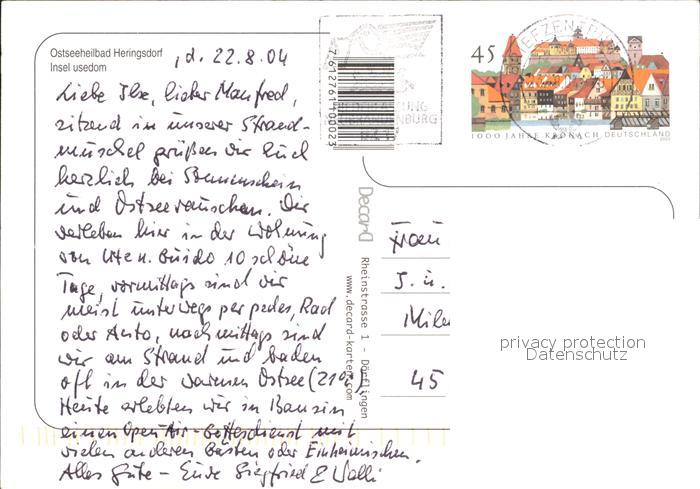 Ostseeheilbad Heringsdorf
Insel usedom
, d. 22.8.04
Liebe Ilse, lieber Manfred,
sitzend in unserer Strand-
muschel grüßen wir Euch
herzlich bei Sonnenschein
und Ostseerauschen. Wir
verleben hier in der Wohnung
von Ute u. Guido 10 schöne
Tage, vormittags sind wir
meist unterwegs per pedes, Rad
oder Auto, nachmittags sind
wir am Strand und baden
oft in der warmen Ostsee (21°C).
Heute erlebten wir in Bansin
einen Open Air-Gottesdienst mit
vielen anderen Gästen oder Einheimischen.
Alles Gute – Eure Siegfried & Valli
7612761400023
Decard
Rheinstrasse 1 - Dörflingen
www.decard-karten.com
BRIEFZENTRUM
45
1000 JAHRE KRONACH DEUTSCHLAND
Frau
I. u.
45
privacy protection
Datenschutz